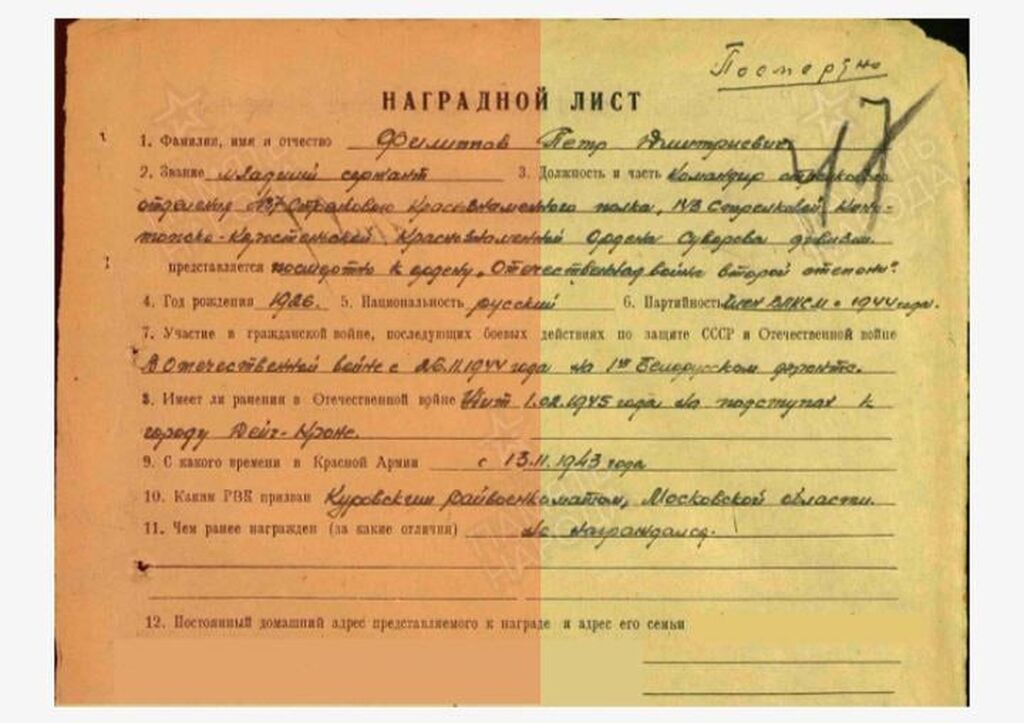 Посмертно
НАГРАДНОЙ ЛИСТ
1. Фамилия, имя и отчество Филиппов Петр Дмитриевич
2. Звание младший сержант 3. Должность и часть Командир стрелкового
отделения Стрелкового Краснознаменного полка, Стрелковой Коно-
топско-Коростеньской Краснознаменной Ордена Суворова дивизии.
представляется посмертно к ордену „Отечественная война второй степени".
4. Год рождения 1926. 5. Национальность русский 6. Партийность член ВЛКСМ с 1944 года.
7. Участие в гражданской войне, последующих боевых действиях по защите СССР и Отечественной войне
В Отечественной войне с 26.11.1944 года на 1ом Белорусском фронте.
8. Имеет ли ранения в Отечественной войне Убит 1.02.1945 года на подступах к
городу Дейч-Кроне.
9. С какого времени в Красной Армии с 13.11.1943 года
10. Каким РВК призван Куровским райвоенкоматом, Московской области.
11. Чем ранее награжден (за какие отличия) не награждался.
12. Постоянный домашний адрес представляемого к награде и адрес его семьи